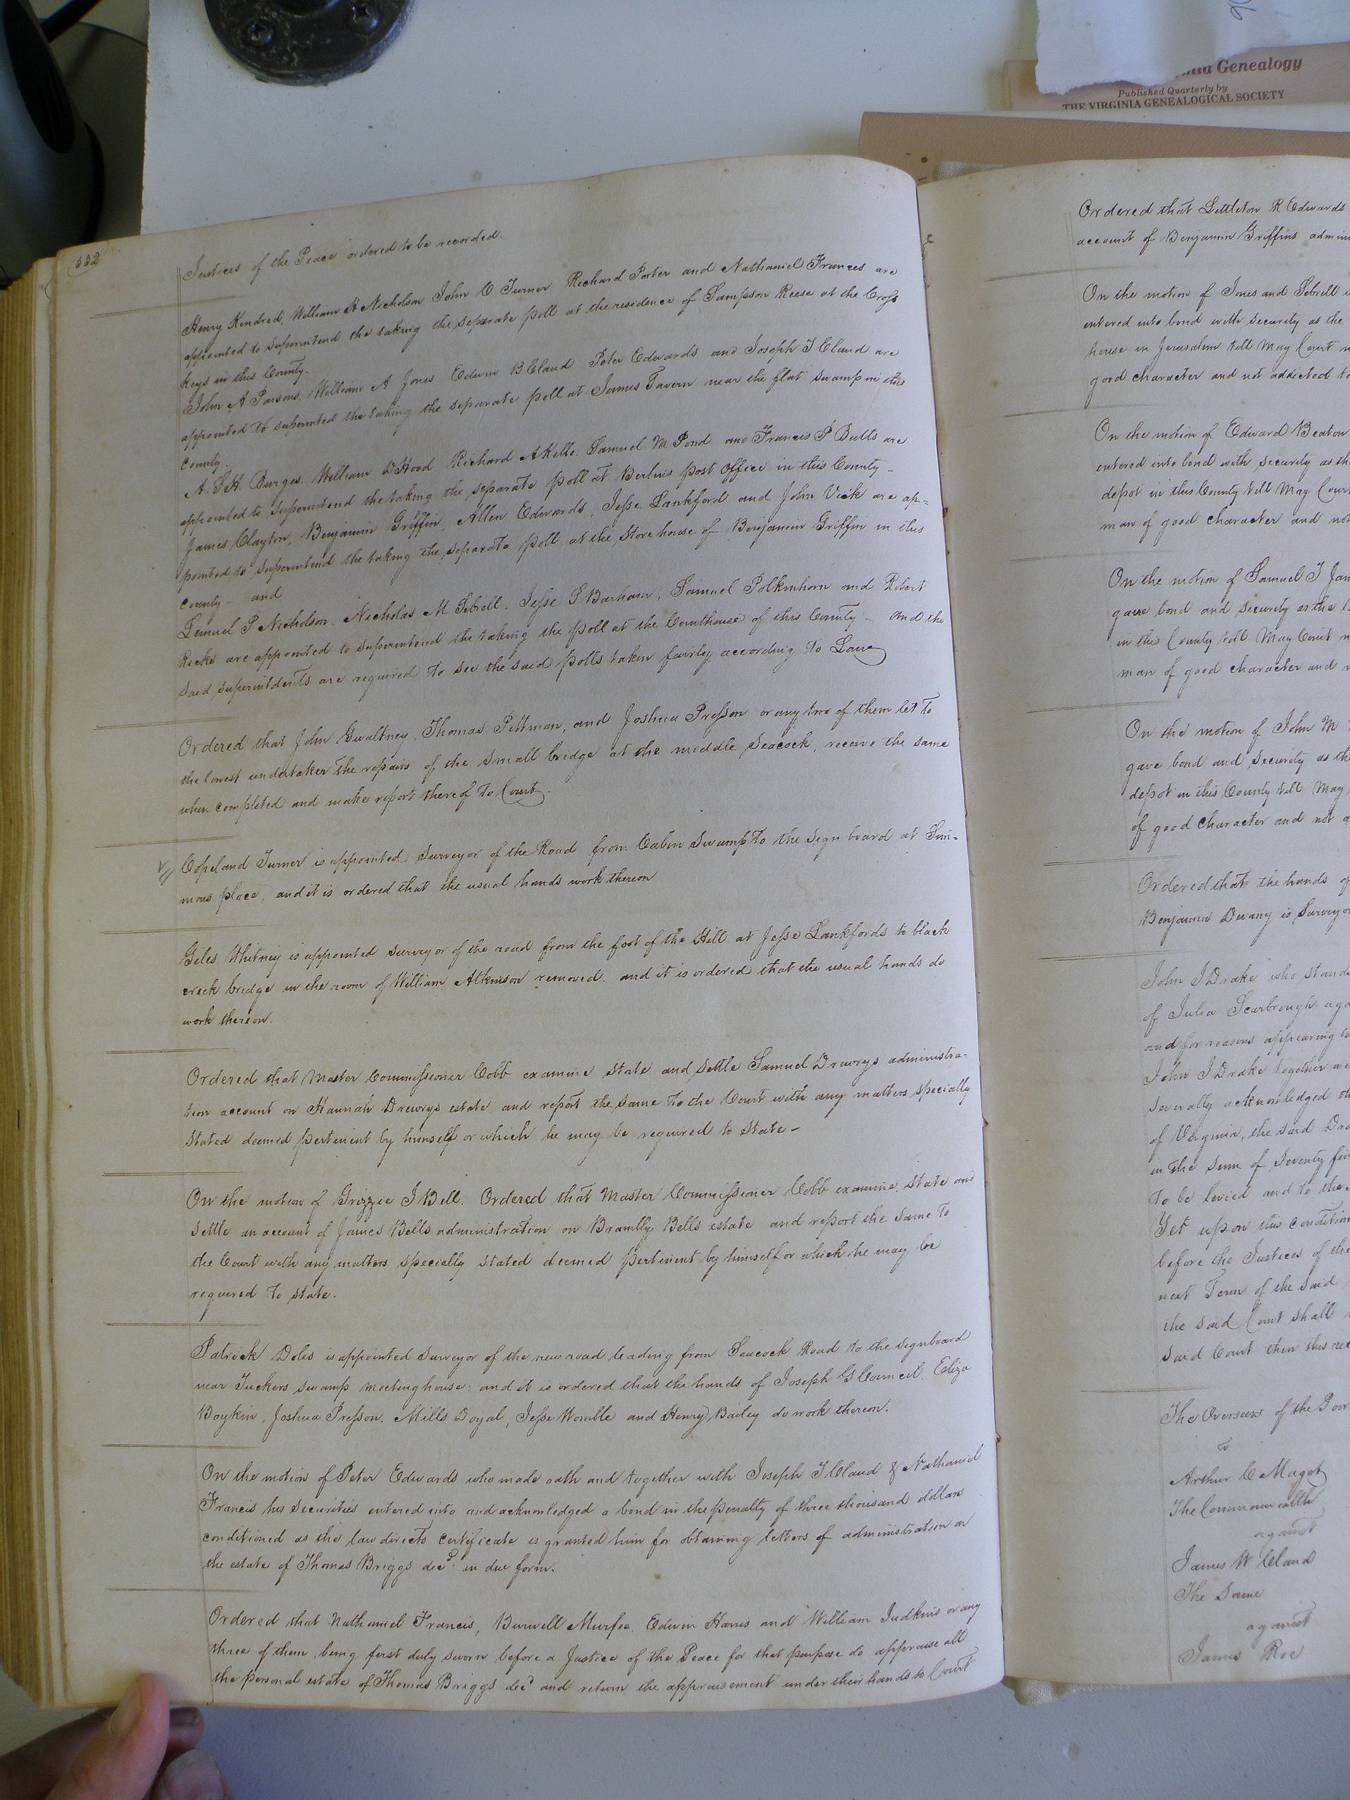 Virginia Genealogy
Published Quarterly by
THE VIRGINIA GENEALOGICAL SOCIETY
332
Justices of the Peace ordered to be recorded.
Henry Kindred, William H Nicholson John C Turner Richard Porter and Nathaniel Frances are
appointed to superintend the taking the separate poll at the residence of Sampson Reese at the Cross
keys in this County.
John A Parsons. William A Jones Edwin B Claud Peter Edwards and Joseph T Claud are
appointed to superintend the taking the separate poll at James Tavern near the flat swamp in this
County.
A. S. H. Burges. William D Hood Richard A Kello. Samuel M Pond and Francis P Butts are
appointed to superintend the taking the separate poll at Berlins post office in this County -
James Clayton, Benjamin Griffin, Allen Edwards, Jesse Lankford and John Vick are ap=
pointed to superintend the taking the separate poll at the Storehouse of Benjamin Griffin in this
County - and
Lemuel P Nicholson. Nicholas M Sebrell. Jesse S Barham. Samuel Polkinhorn and Robert
Ricks are appointed to superintend the taking the poll at the Courthouse of this County - and the
said superintdents are required to see the said polls taken fairly according to Law
Ordered that John Gwaltney, Thomas Pittman, and Joshua Presson or any two of them let to
the lowest undertaker the repairs of the small bridge at the middle Seacock, receive the same
when completed and make report thereof to Court.
Copeland Turner is appointed surveyor of the Road from Cabin Swamp to the sign board at Sim=
mons place, and it is ordered that the usual hands work thereon
Giles Whitney is appointed surveyor of the road from the foot of the Hill at Jesse Lankfords to black
creek bridge in the room of William Atkinson removed. and it is ordered that the usual hands do
work thereon.
Ordered that Master Commissioner Cobb examine state and settle Samuel Drewrys administra-
tion account on Hannah Drewrys estate and report the same to the Court with any matters specially
stated deemed pertinent by himself or which he may be required to state -
On the motion of Grizzie J Bell. Ordered that Master Commissioner Cobb examine, state and
settle an account of James Bells administration on Brantly Bells estate and report the same to
the Court with any matters specially stated deemed pertinent by himself or which he may be
required to state.
Patrick Doles is appointed surveyor of the new road leading from Seacock Road to the signboard
near Tuckers swamp meetinghouse: and it is ordered that the hands of Joseph G Council, Eliza
Boykin, Joshua Presson. Mills Doyal, Jesse Womble and Henry Bailey do work thereon.
On the motion of Peter Edwards who made oath and together with Joseph T Claud & Nathaniel
Francis his Securities entered into and acknowledged a bond in the penalty of three thousand dollars
conditioned as the law directs certificate is granted him for obtaining letters of administration on
the estate of Thomas Briggs decd. in due form.
Ordered that Nathaniel Francis, Burwell Murfee, Edwin Harris and William Judkins or any
three of them, being first duly sworn before a Justice of the Peace for that purpose do appraise all
the personal estate of Thomas Briggs decd and return the appraisement under their hands to Court
Ordered that Littleton R Edwards
account of Benjamin Griffins
On the motion of Ines and Sebrell
entered into bond with security as the
house in Jerusalem till May Court
good character and not addicted to
On the motion of Edward Beaton
entered into bond with security as the
depot in this County till May Court
man of good character and not
On the motion of Samuel T
gave bond and security as the
in the County till May Court
man of good character and
On the motion of John M
gave bond and security as the
depot in this County till May
of good character and not
Ordered that the hands of
Benjamin Devany is Surveyor
John J Drake who stands
of Julia Scarbrough
and for reasons appearing to
John J Drake together
severally acknowledged
of Virginia, the said
in the sum of Seventy five
to be levied and to the
Yet upon this condition
before the Justices of the
next Term of the said
the said Court shall
said Court then this
The Overseers of the Poor
vs
Arthur C Maget
The Commonwealth
against
James W Claud
The Same
against
James Roe